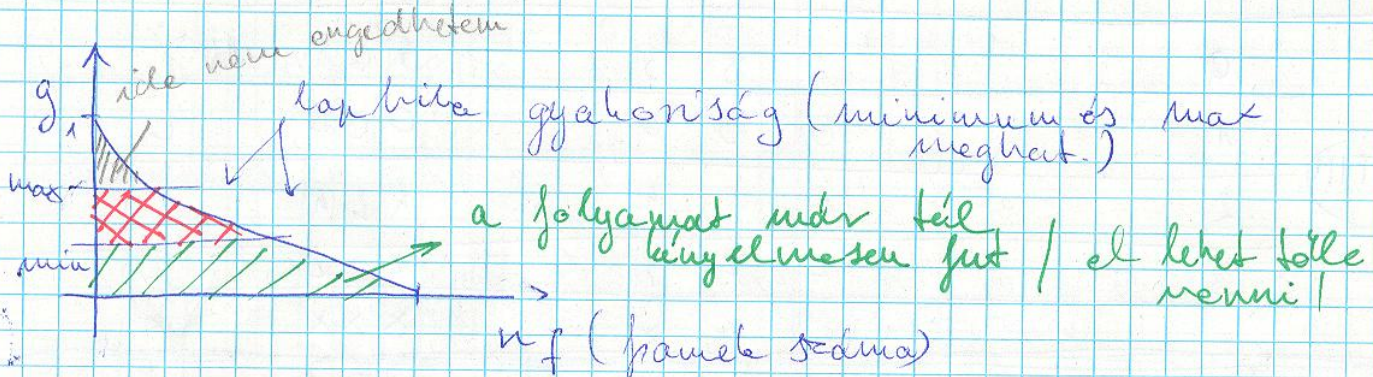 ide nem engedhetem
g
1
laphiba gyakoriság (minimum és max
meghat.)
max
a folyamat már túl
kényelmesen fut / el lehet tőlle
venni!
min
n f (framek száma)